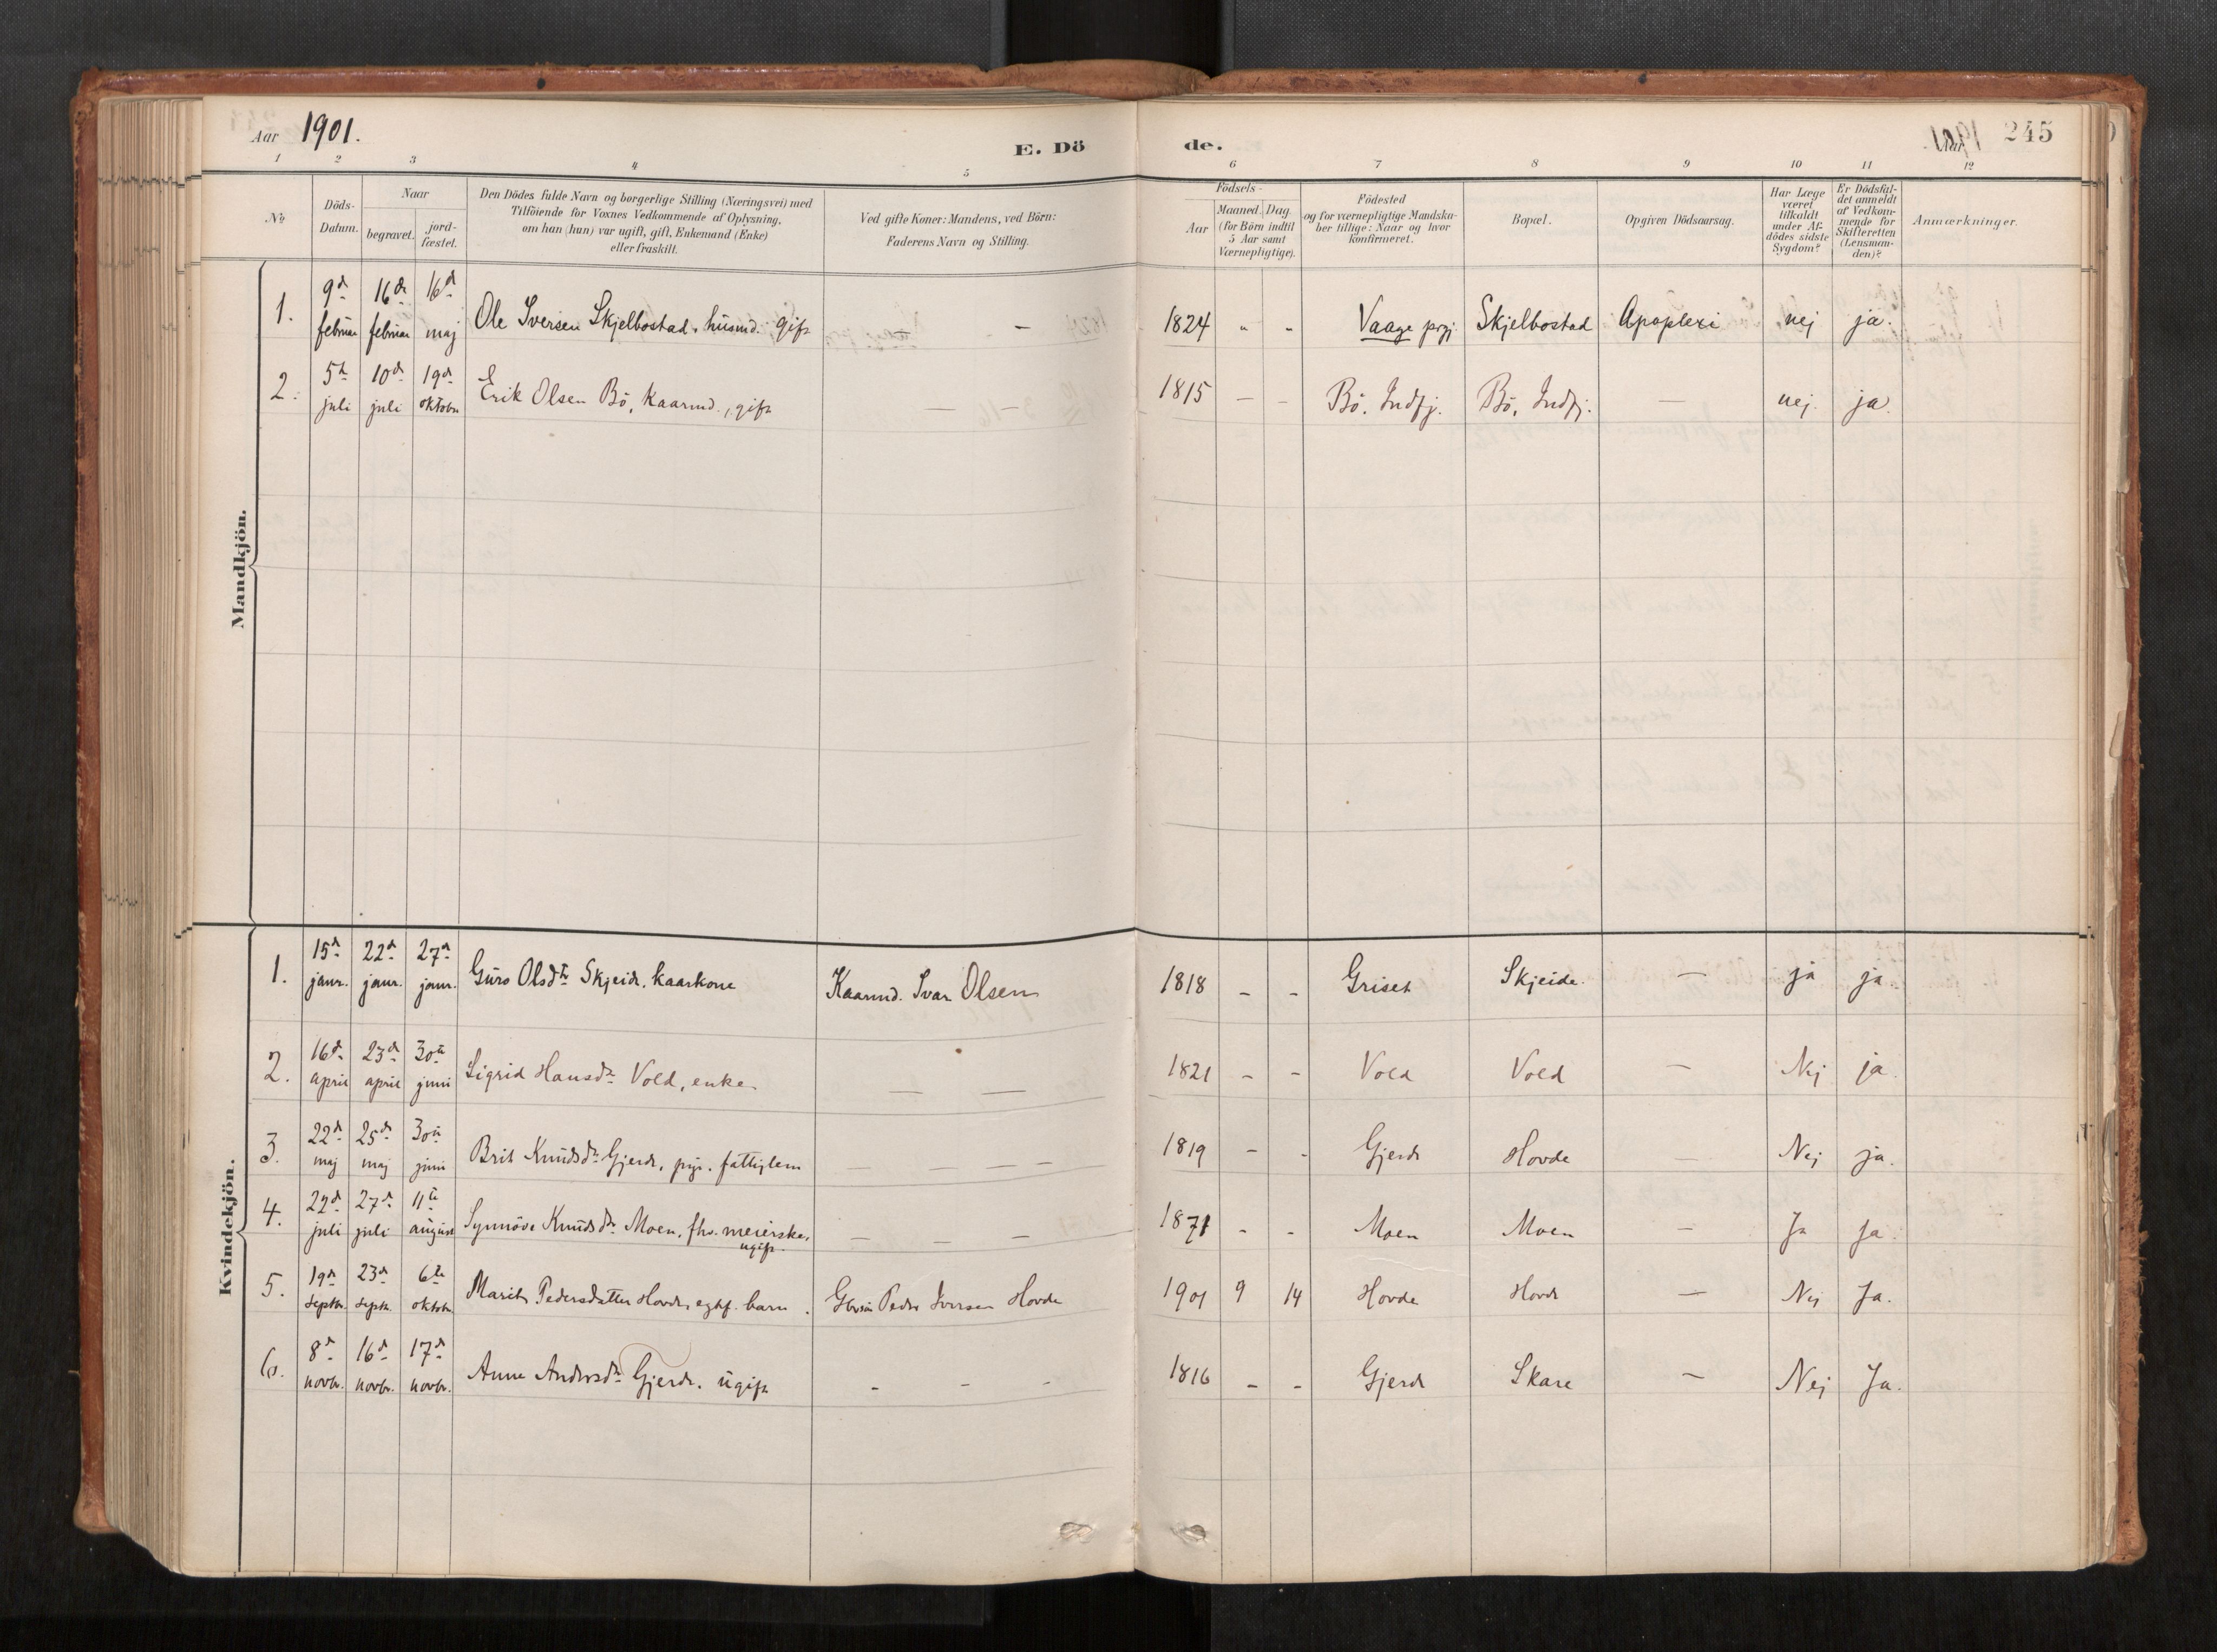 Aar 1901.
E. Dö
de.
245
1 2 3 4 5 6 7 8 9 10 11 12
No
Döds-Datum.
Naar
begravet.
jord-fæstet.
Den Dödes fulde Navn og borgerlige Stilling (Næringsvei) med
Tilföiende for Voxnes Vedkommende af Oplysning,
om han (hun) var ugift, gift, Enkemand (Enke)
eller fraskilt.
Ved gifte Koner: Mandens, ved Börn:
Faderens Navn og Stilling.
Födsels-
Aar
Maaned. Dag.
(for Börn indtil
5 Aar samt
Værnepligtige).
Födested
og for værnepligtige Mandska-
ber tillige: Naar og hvor
konfirmeret.
Bopæl.
Opgiven Dödsaarsag.
Har Læge
været
tilkaldt
under Af-
dödes sidste
Sygdom?
Er Dödsfal-
det anmeldt
af Vedkom-
mende for
Skifteretten
(Lensman-
den)?
Anmærkninger.
Mandkjön.
1. 9d februar 16de februar 16d maj Ole Iversen Skjelbostad, husmd. gift — 1824 " " Vaage prgj. Skjelbostad Apoplexi nej ja.
2. 5te juli 10d juli 19d oktobr Erik Olsen Bö, Kaarmd., gift — — 1815 — — Bö, Indfj. Bö, Indfj. — nej. ja.
Kvindekjön.
1. 15d janr. 22d janr. 27d janr. Guro Olsdtr Skjeide, kaarkone Kaarmd. Ivar Olsen 1818 – – Griset Skjeide. — ja ja.
2. 16d april 23d april 30te juni Sigrid Hansdtr Vold, enke — — 1821 – – Vold Vold — Nej ja.
3. 22d maj 25d maj 30te juni Brit Knudsdtr Gjerde, fattiglem — — — 1819 – – Gjerde Hovde — Nej ja.
4. 22d juli 27d juli 11te august Synnöve Knudsdtr Moen, fhv. meierske,
ugift — — — 1871 – – Moen Moen — Ja ja.
5. 19d septbr. 23d septbr. 6te oktobr. Marit Pedersdatter Hovde, egtf. barn. Peder Iversen Hovde 1901 9 14 Hovde Hovde — Nej Ja.
6. 8d novbr. 16d novbr. 17d novbr. Anne Andersdtr Gjerde. ugift – – – 1816 – – Gjerde Skare — Nej Ja.